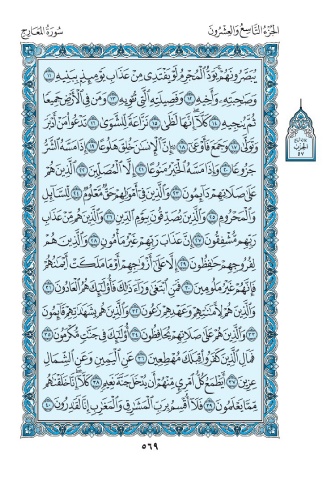 الجزء التاسع والعشرون
سورة المعارج
يُبَصَّرُونَهُمْ يَوَدُّ الْمُجْرِمُ لَوْ يَفْتَدِي مِنْ عَذَابِ يَوْمِئِذٍ بِبَنِيهِ ١١
وَصَاحِبَتِهِ وَأَخِيهِ ١٢ وَفَصِيلَتِهِ الَّتِي تُؤْوِيهِ ١٣ وَمَنْ فِي الْأَرْضِ جَمِيعًا
ثُمَّ يُنْجِيهِ ١٤ كَلَّا إِنَّهَا لَظَى ١٥ نَزَّاعَةً لِلشَّوَى ١٦ تَدْعُو مَنْ أَدْبَرَ
وَتَوَلَّى ١٧ وَجَمَعَ فَأَوْعَى ١٨ إِنَّ الْإِنْسَانَ خُلِقَ هَلُوعًا ١٩ إِذَا مَسَّهُ الشَّرُّ
جَزُوعًا ٢٠ وَإِذَا مَسَّهُ الْخَيْرُ مَنُوعًا ٢١ إِلَّا الْمُصَلِّينَ ٢٢ الَّذِينَ هُمْ
عَلَى صَلَاتِهِمْ دَائِمُونَ ٢٣ وَالَّذِينَ فِي أَمْوَالِهِمْ حَقٌّ مَعْلُومٌ ٢٤ لِلسَّائِلِ
وَالْمَحْرُومِ ٢٥ وَالَّذِينَ يُصَدِّقُونَ بِيَوْمِ الدِّينِ ٢٦ وَالَّذِينَ هُمْ مِنْ عَذَابِ
رَبِّهِمْ مُشْفِقُونَ ٢٧ إِنَّ عَذَابَ رَبِّهِمْ غَيْرُ مَأْمُونٍ ٢٨ وَالَّذِينَ هُمْ
لِفُرُوجِهِمْ حَافِظُونَ ٢٩ إِلَّا عَلَى أَزْوَاجِهِمْ أَوْ مَا مَلَكَتْ أَيْمَانُهُمْ
فَإِنَّهُمْ غَيْرُ مَلُومِينَ ٣٠ فَمَنِ ابْتَغَى وَرَاءَ ذَلِكَ فَأُولَئِكَ هُمُ الْعَادُونَ ٣١
وَالَّذِينَ هُمْ لِأَمَانَاتِهِمْ وَعَهْدِهِمْ رَاعُونَ ٣٢ وَالَّذِينَ هُمْ بِشَهَادَاتِهِمْ قَائِمُونَ
٣٣ وَالَّذِينَ هُمْ عَلَى صَلَاتِهِمْ يُحَافِظُونَ ٣٤ أُولَئِكَ فِي جَنَّاتٍ مُكْرَمُونَ ٣٥
فَمَالِ الَّذِينَ كَفَرُوا قِبَلَكَ مُهْطِعِينَ ٣٦ عَنِ الْيَمِينِ وَعَنِ الشِّمَالِ
عِزِينَ ٣٧ أَيَطْمَعُ كُلُّ امْرِئٍ مِنْهُمْ أَنْ يُدْخَلَ جَنَّةَ نَعِيمٍ ٣٨ كَلَّا إِنَّا خَلَقْنَاهُمْ
مِمَّا يَعْلَمُونَ ٣٩ فَلَا أُقْسِمُ بِرَبِّ الْمَشَارِقِ وَالْمَغَارِبِ إِنَّا لَقَادِرُونَ ٤٠
٥٦٩